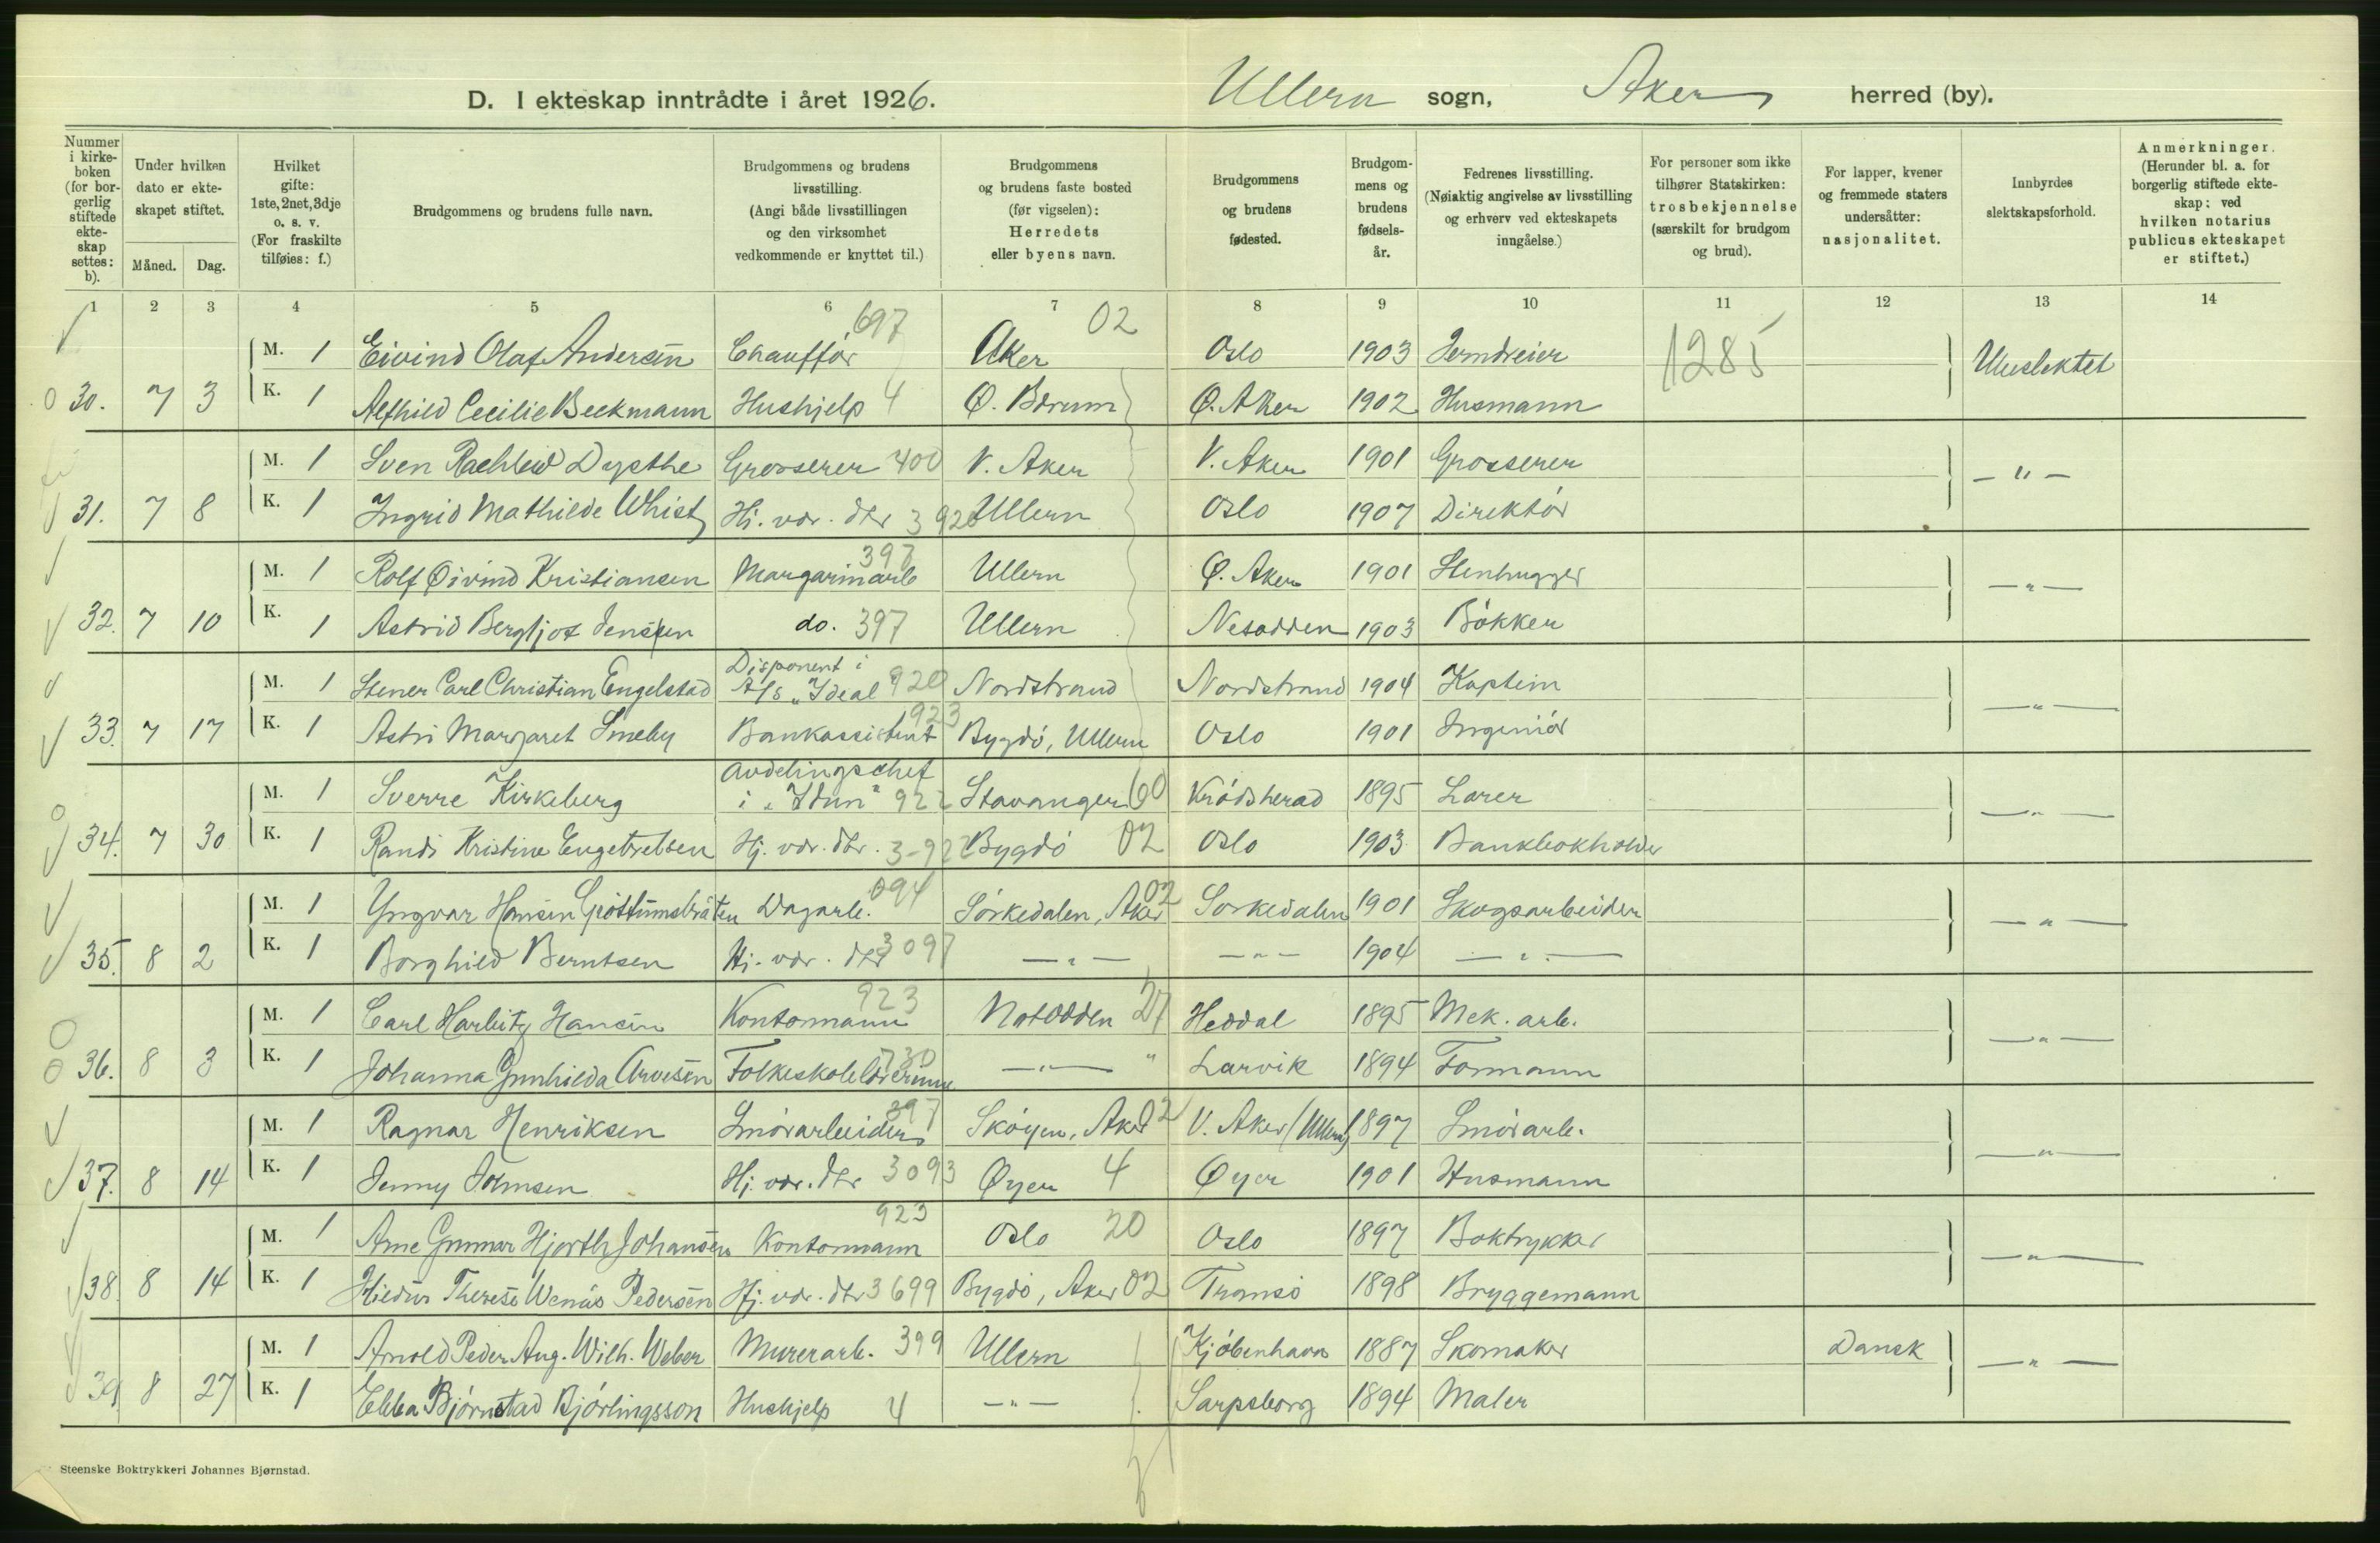 D. I ekteskap inntrådte i året 1926. Ullern sogn, Aker herred (by).
Nummer i kirkeboken (for borgerlig stiftede ekteskap settes: b).
Under hvilken dato er ekteskapet stiftet.
Måned. Dag.
Hvilket gifte: 1ste, 2net, 3dje o. s. v. (For fraskilte tilføies: f.)
Brudgommens og brudens fulle navn.
Brudgommens og brudens livsstilling. (Angi både livsstillingen og den virksomhet vedkommende er knyttet til.)
Brudgommens og brudens faste bosted (før vigselen): Herredets eller byens navn.
Brudgommens og brudens fødested.
Brudgommens og brudens fødselsår.
Fedrenes livsstilling. (Nøiaktig angivelse av livsstilling og erhverv ved ekteskapets inngåelse.)
For personer som ikke tilhører Statskirken: trosbekjennelse (særskilt for brudgom og brud).
For lapper, kvener og fremmede staters undersåtter: nasjonalitet.
Innbyrdes slektskapsforhold.
Anmerkninger. (Herunder bl. a. for borgerlig stiftede ekteskap: ved hvilken notarius publicus ekteskapet er stiftet.)
1 2 3 4 5 6 7 8 9 10 11 12 13 14
697 02
M. 1 Eivind Olaf Andersen Chauffør Aker Oslo 1903 Jerndreier 1285 Ubeslektet
30. 7 3 K. 1 Alfhild Cecilie Beckmann Hushjelp 4 Ø. Bærum Ø. Aker 1902 Husmann
M. 1 Sven Dysthe Grosserer 400 V. Aker V. Aker 1901 Grosserer - " -
31. 7 8 K. 1 Ingrid Mathilde Whist Hj. vær. dtr 3 920 Ullern Oslo 1907 Direktør
M. 1 Rolf Øivind Kristiansen Margarinarb 397 Ullern Ø. Aker 1901 Stenhugger - " -
32. 7 10 K. 1 Astrid Bergljot Jensen do. 397 Ullern Nesodden 1903 Bøkker
M. 1 Stener Carl Christian Engelstad Disponent i A/S "Ideal 920 Nordstrand Nordstrand 1904 Kaptein - " -
33. 7 17 K. 1 Astri Margaret Smeby Bankassistent 923 Bygdø, Ullern Oslo 1901 Ingeniør
M. 1 Sverre Kirkeberg Avdelingschef i "Idun" 922 Stavanger 60 Krødsherad 1895 Lærer - " -
34. 7 30 K. 1 Randi Kristine Engebretsen Hj. vær. dtr. 3-922 Bygdø 02 Oslo 1903 Bankbokholder
M. 1 Yngvar Hansen Grøttumsbråten Dagarb. 094 Sørkedalen, Aker 02 Sørkedalen 1901 Skogsarbeider - " -
35. 8 2 K. 1 Borghild Berntsen Hj. vær. dtr 3 097 - " - - " - 1904 - " -
M. 1 Carl Harbitz Hansen Kontormann 923 Notodden 27 Heddal 1895 Mek. arb. - " -
36. 8 3 K. 1 Johanna Gunhilda Arvesen Folkeskolelærerinne 730 - " - " Larvik 1894 Formann
M. 1 Ragnar Henriksen Smørarbeider 397 Skøyen, Aker 02 V. Aker (Ullern) 1897 Smørarb. - " -
37. 8 14 K. 1 Jenny Johnsen Hj. vær. dtr 3093 Øyer 4 Øyer 1901 Husmann
M. 1 Arne Gunnar Hjorth Johansen Kontormann 923 Oslo 20 Oslo 1897 Boktrykker - " -
38. 8 14 K. 1 Therese Wenås Pedersen Hj. vær. dtr 3 699 Bygdø, Aker 02 Tromsø 1898 Bryggemann
M. 1 Arnold Peder Aug. Wilh. Weber Murerarb. 399 Ullern Kjøbenhavn 1887 Skomaker Dansk - " -
39 8 27 K. 1 Ebba Bjørnstad Bjørlingsson Hushjelp 4 - " - Sarpsborg 1894 Maler
Steenske Boktrykkeri Johannes Bjørnstad.